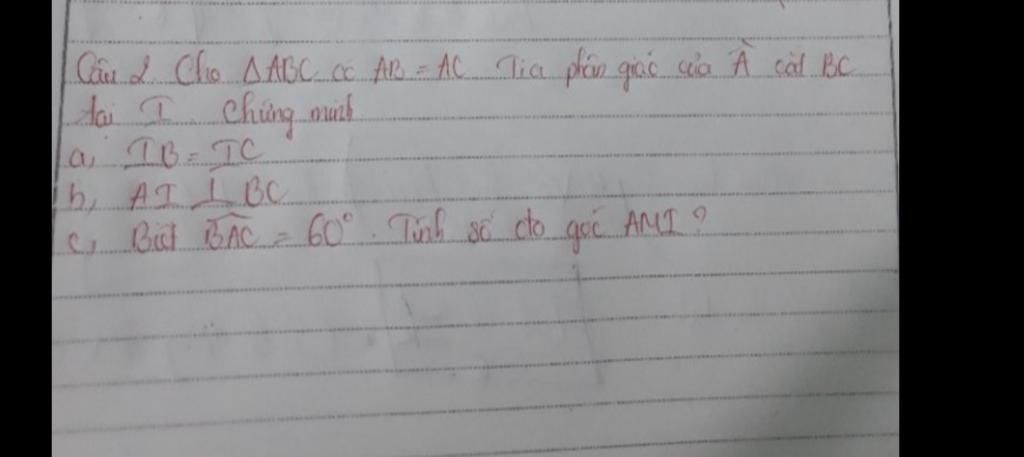 Câu 2. Cho ΔABC có AB = AC Tia phân giác của Â cắt BC
tại I. Chứng minh
a, IB = IC
b, AI ⊥ BC
c, Biết \widehat{BAC} = 60°. Tính số đo góc AMI?